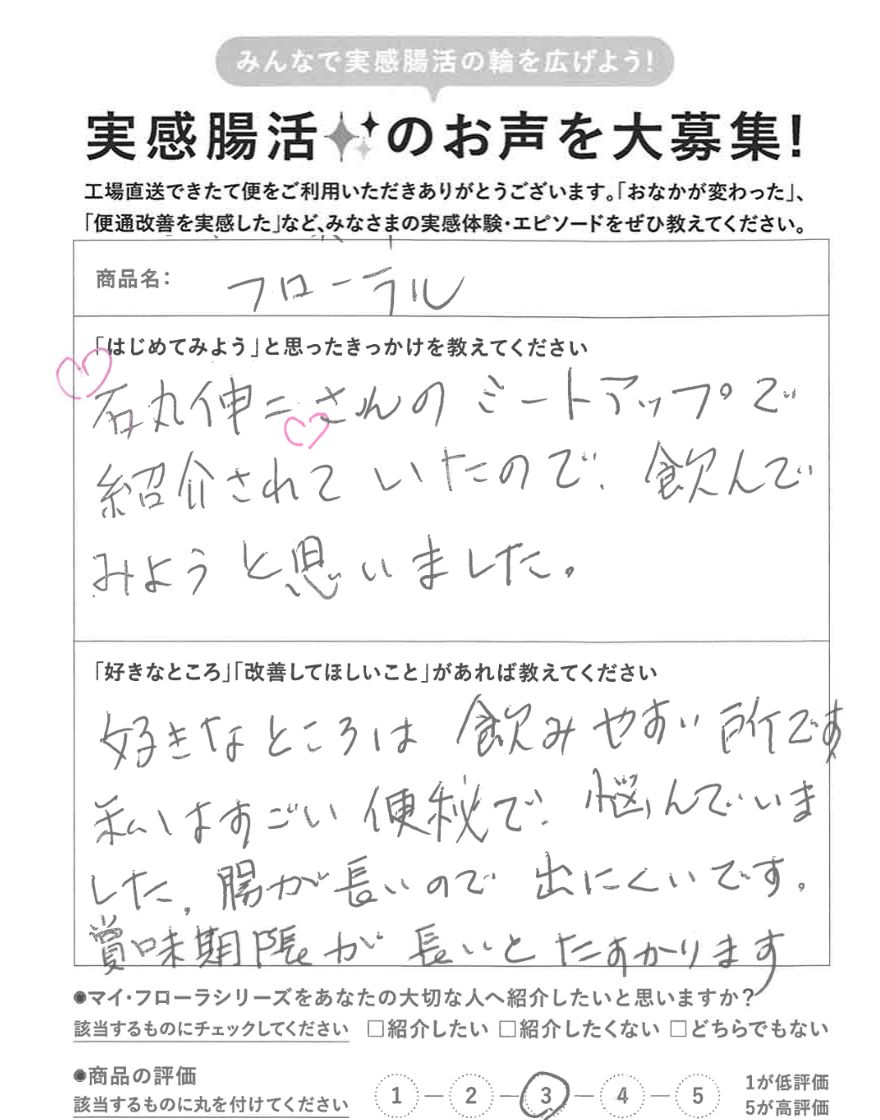 みんなで実感腸活の輪を広げよう!
実感腸活のお声を大募集!
工場直送できたて便をご利用いただきありがとうございます。「おなかが変わった」、
「便通改善を実感した」など、みなさまの実感体験・エピソードをぜひ教えてください。
商品名: フローラル
「はじめてみよう」と思ったきっかけを教えてください
石丸伸二さんのミートアップで
紹介されていたので、飲んで
みようと思いました。
「好きなところ」「改善してほしいこと」があれば教えてください
好きなところは飲みやすい所です
私はすごい便秘で、悩んでいま
した。腸が長いので出にくいです。
賞味期限が長いとたすかります
●マイ・フローラシリーズをあなたの大切な人へ紹介したいと思いますか?
該当するものにチェックしてください □紹介したい □紹介したくない □どちらでもない
●商品の評価
該当するものに丸を付けてください 1 — 2 — 3 — 4 — 5
1が低評価
5が高評価